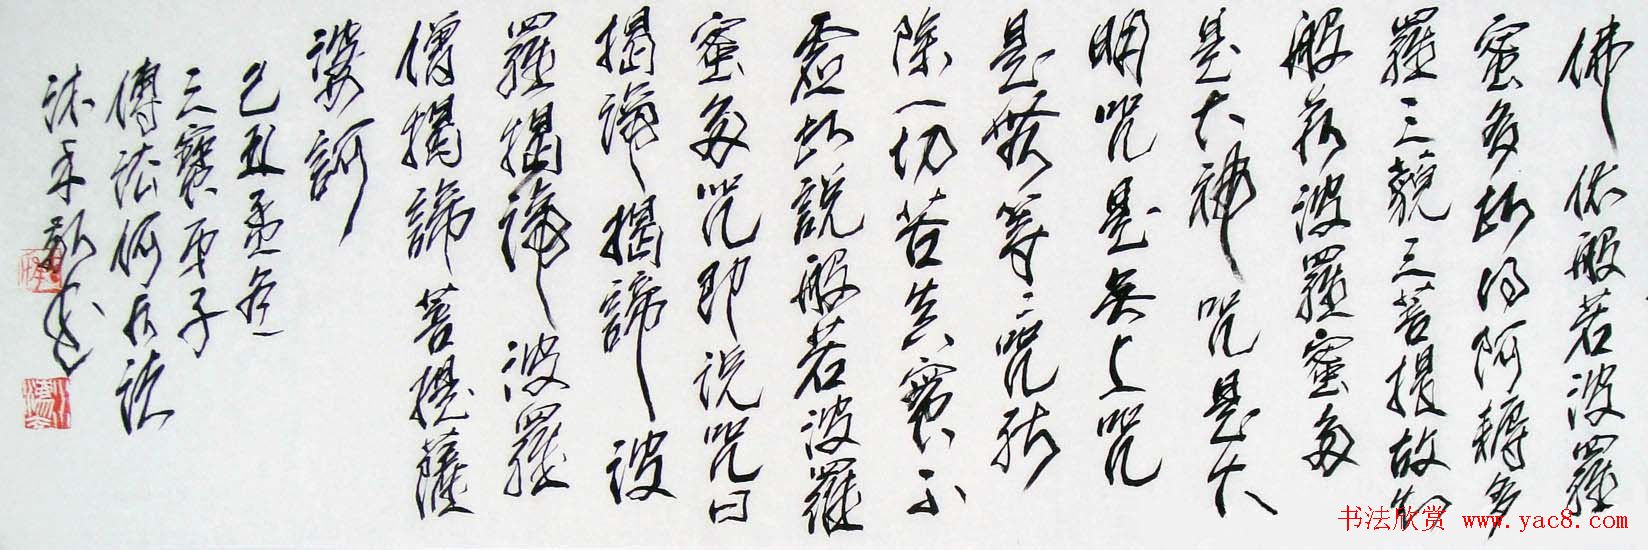 佛依般若波羅
蜜多故得阿耨多
羅三藐三菩提故知
般若波羅蜜多
是大神咒是大
明咒是無上咒
是無等等咒能
除一切苦真實不
虛故說般若波羅
蜜多咒即说咒曰
揭諦揭諦波
羅揭諦波羅
僧揭諦菩提薩
婆訶
己丑孟冬
三寶弟子
傅法
书法欣赏 www.yac8.com